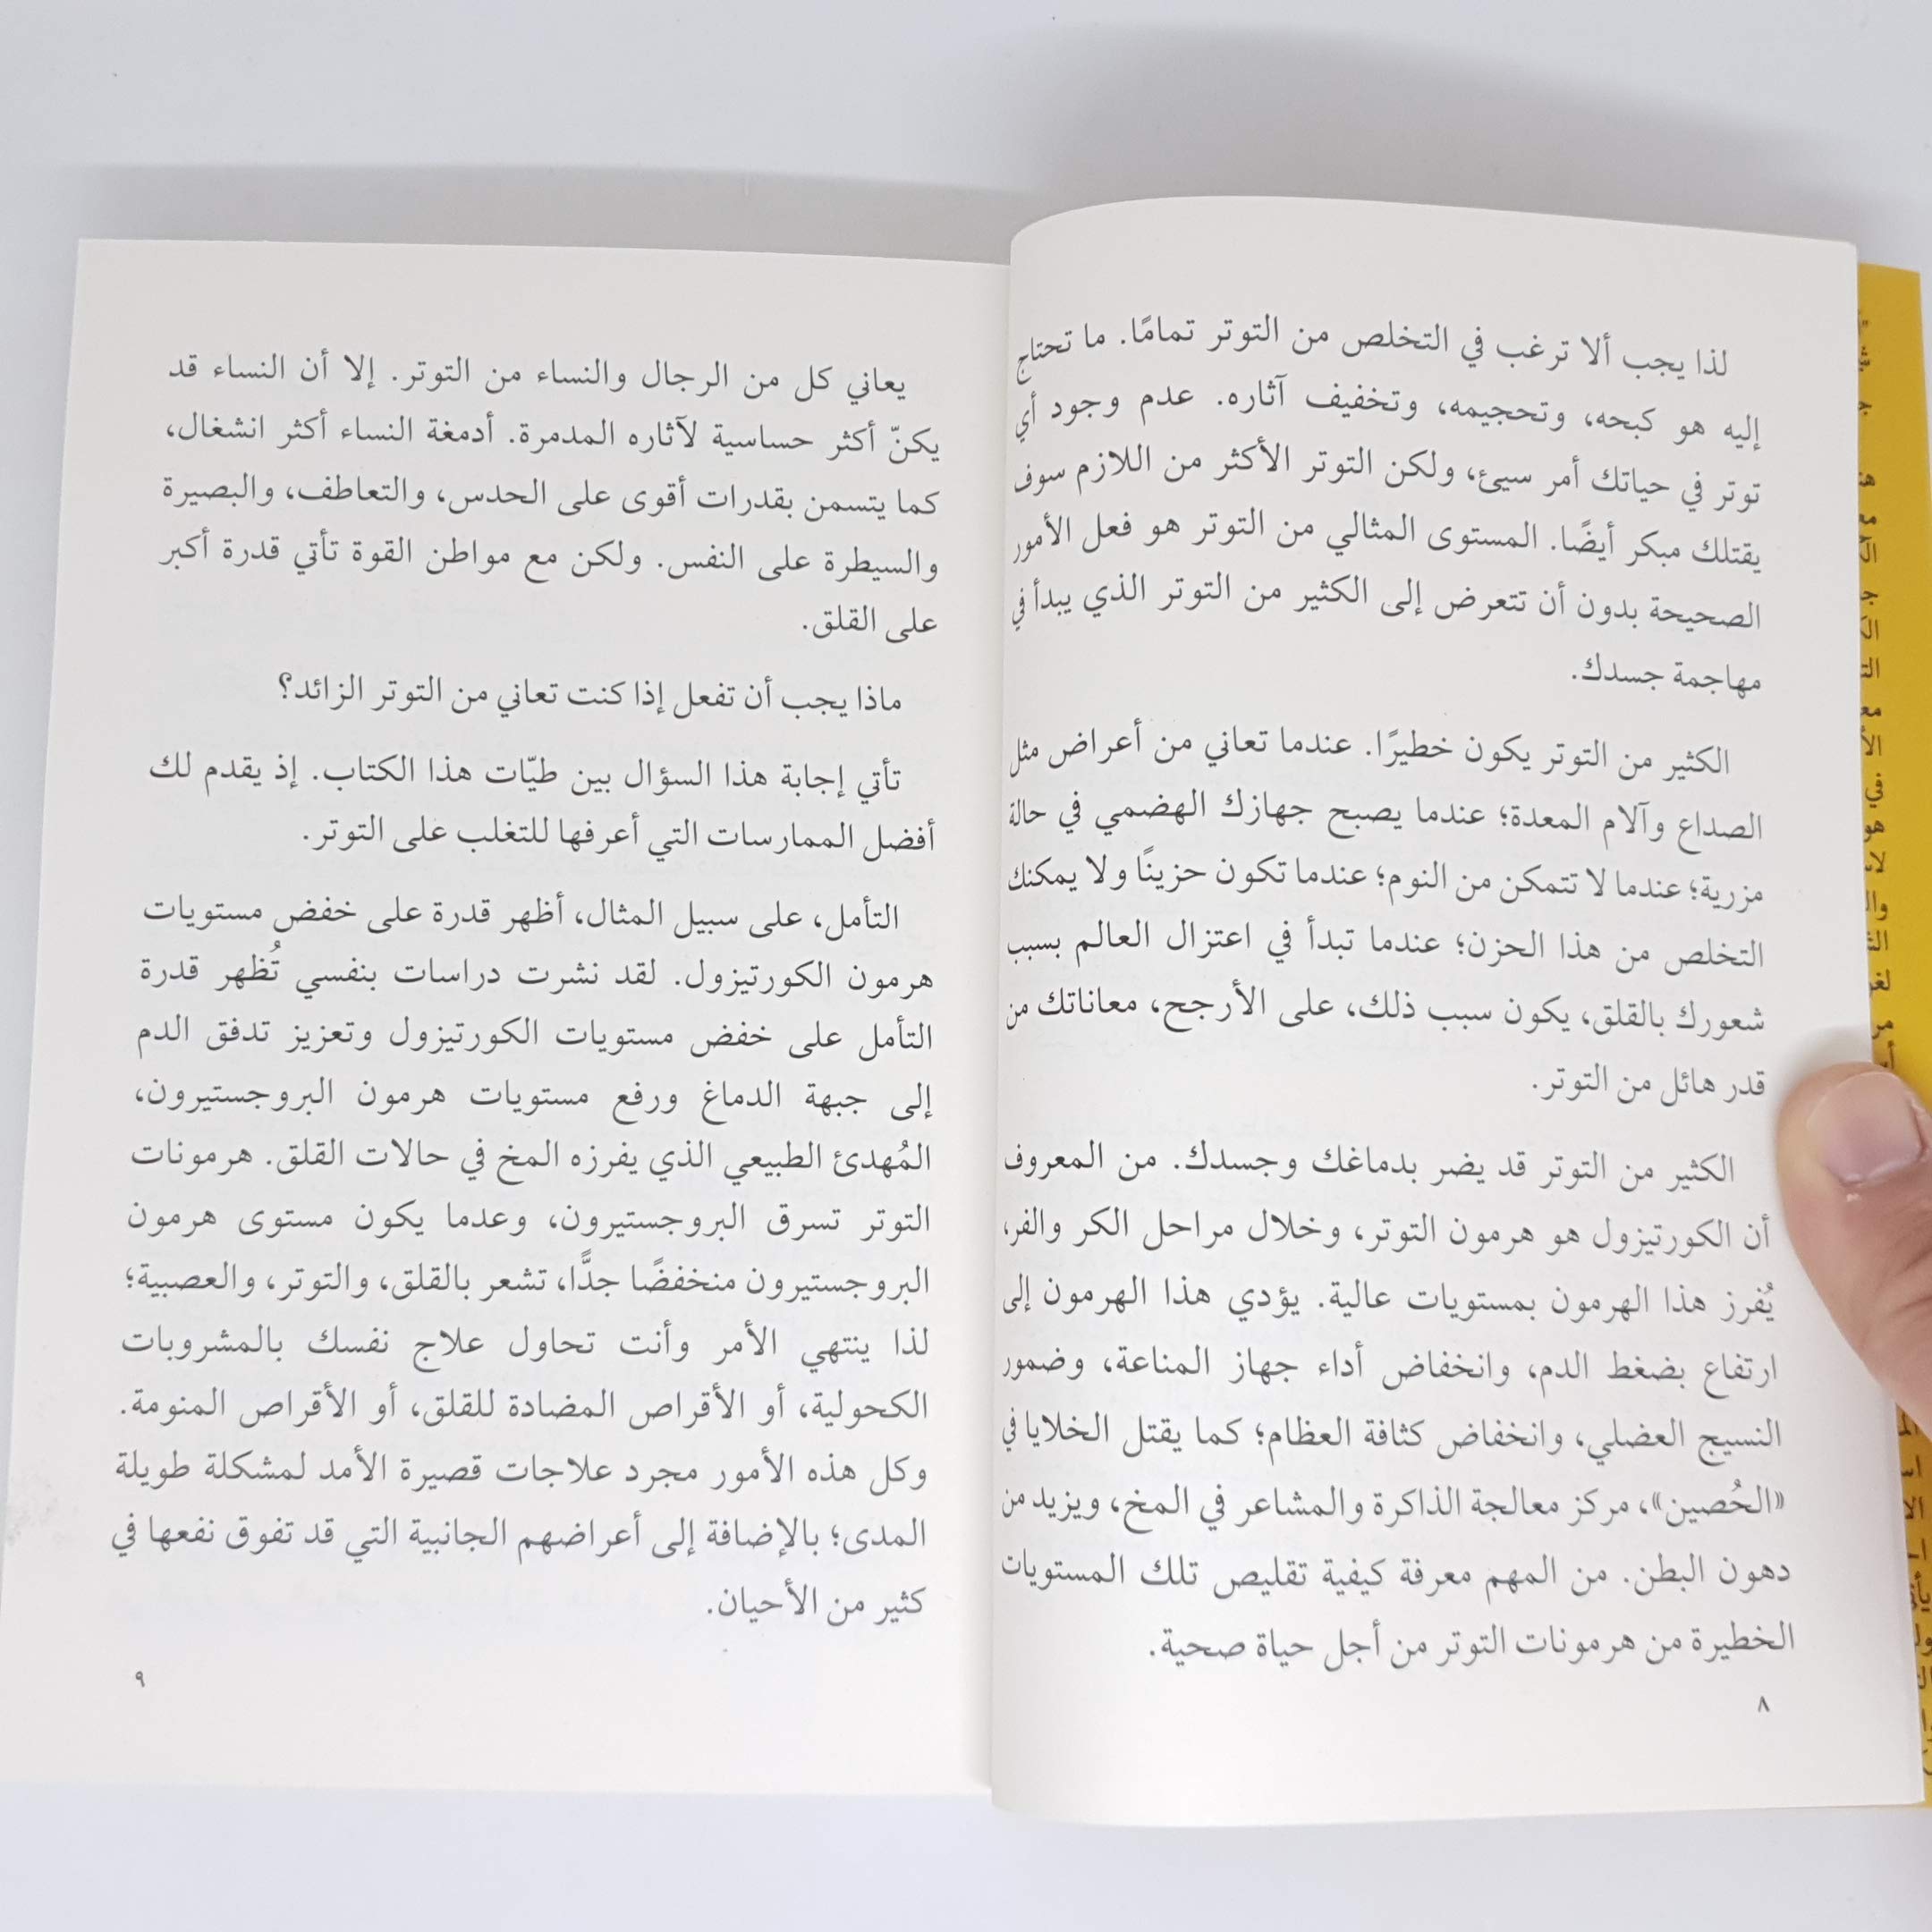 لذا يجب ألا ترغب في التخلص من التوتر تمامًا. ما تحتاج
إليه هو كبحه، وتحجيمه، وتخفيف آثاره. عدم وجود أي
توتر في حياتك أمر سيئ، ولكن التوتر الأكثر من اللازم سوف
يقتلك مبكر أيضًا. المستوى المثالي من التوتر هو فعل الأمور
الصحيحة بدون أن تتعرض إلى الكثير من التوتر الذي يبدأ في
مهاجمة جسدك.
الكثير من التوتر يكون خطيرًا. عندما تعاني من أعراض مثل
الصداع وآلام المعدة؛ عندما يصبح جهازك الهضمي في حالة
مزرية؛ عندما لا تتمكن من النوم؛ عندما تكون حزينًا ولا يمكنك
التخلص من هذا الحزن؛ عندما تبدأ في اعتزال العالم بسبب
شعورك بالقلق، يكون سبب ذلك، على الأرجح، معاناتك من
قدر هائل من التوتر.
الكثير من التوتر قد يضر بدماغك وجسدك. من المعروف
أن الكورتيزول هو هرمون التوتر، وخلال مراحل الكر والفر،
يُفرز هذا الهرمون بمستويات عالية. يؤدي هذا الهرمون إلى
ارتفاع بضغط الدم، وانخفاض أداء جهاز المناعة، وضمور
النسيج العضلي، وانخفاض كثافة العظام؛ كما يقتل الخلايا في
«الحُصين»، مركز معالجة الذاكرة والمشاعر في المخ، ويزيد من
دهون البطن. من المهم معرفة كيفية تقليص تلك المستويات
الخطيرة من هرمونات التوتر من أجل حياة صحية.
٨
يعاني كل من الرجال والنساء من التوتر. إلا أن النساء قد
يكنّ أكثر حساسية لآثاره المدمرة. أدمغة النساء أكثر انشغال،
كما يتسمن بقدرات أقوى على الحدس، والتعاطف، والبصيرة
والسيطرة على النفس. ولكن مع مواطن القوة تأتي قدرة أكبر
على القلق.
ماذا يجب أن تفعل إذا كنت تعاني من التوتر الزائد؟
تأتي إجابة هذا السؤال بين طيّات هذا الكتاب. إذ يقدم لك
أفضل الممارسات التي أعرفها للتغلب على التوتر.
التأمل، على سبيل المثال، أظهر قدرة على خفض مستويات
هرمون الكورتيزول. لقد نشرت دراسات بنفسي تُظهر قدرة
التأمل على خفض مستويات الكورتيزول وتعزيز تدفق الدم
إلى جبهة الدماغ ورفع مستويات هرمون البروجستيرون،
المُهدئ الطبيعي الذي يفرزه المخ في حالات القلق. هرمونات
التوتر تسرق البروجستيرون، وعدما يكون مستوى هرمون
البروجستيرون منخفضًا جدًّا، تشعر بالقلق، والتوتر، والعصبية؛
لذا ينتهي الأمر وأنت تحاول علاج نفسك بالمشروبات
الكحولية، أو الأقراص المضادة للقلق، أو الأقراص المنومة.
وكل هذه الأمور مجرد علاجات قصيرة الأمد لمشكلة طويلة
المدى؛ بالإضافة إلى أعراضهم الجانبية التي قد تفوق نفعها في
كثير من الأحيان.
٩